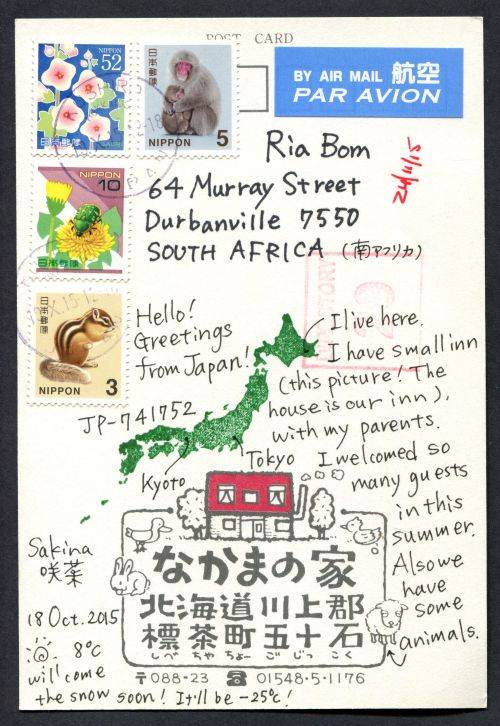 POST CARD
NIPPON
52
日本郵便
日本郵便
NIPPON 5
BY AIR MAIL 航空
PAR AVION
Ria Bom
64 Murray Street
Durbanville 7550
SOUTH AFRICA (南アフリカ)
24/11/15
NIPPON
10
日本郵便
日本郵便
NIPPON 3
Hello!
Greetings
from Japan!
JP-741752
I live here.
I have small inn
(this picture! The
house is our inn),
with my parents.
I welcomed so
many guests
in this
summer.
Also we
have
some
animals.
Kyoto
Tokyo
Sakina
咲菜
18 Oct. 2015
8°C
will come
the snow soon! It'll be -25°C!
なかまの家
北海道川上郡
標茶町五十石
しべ ちゃ ちょー ご じっ こく
〒088-23 ☎ 01548-5-1176